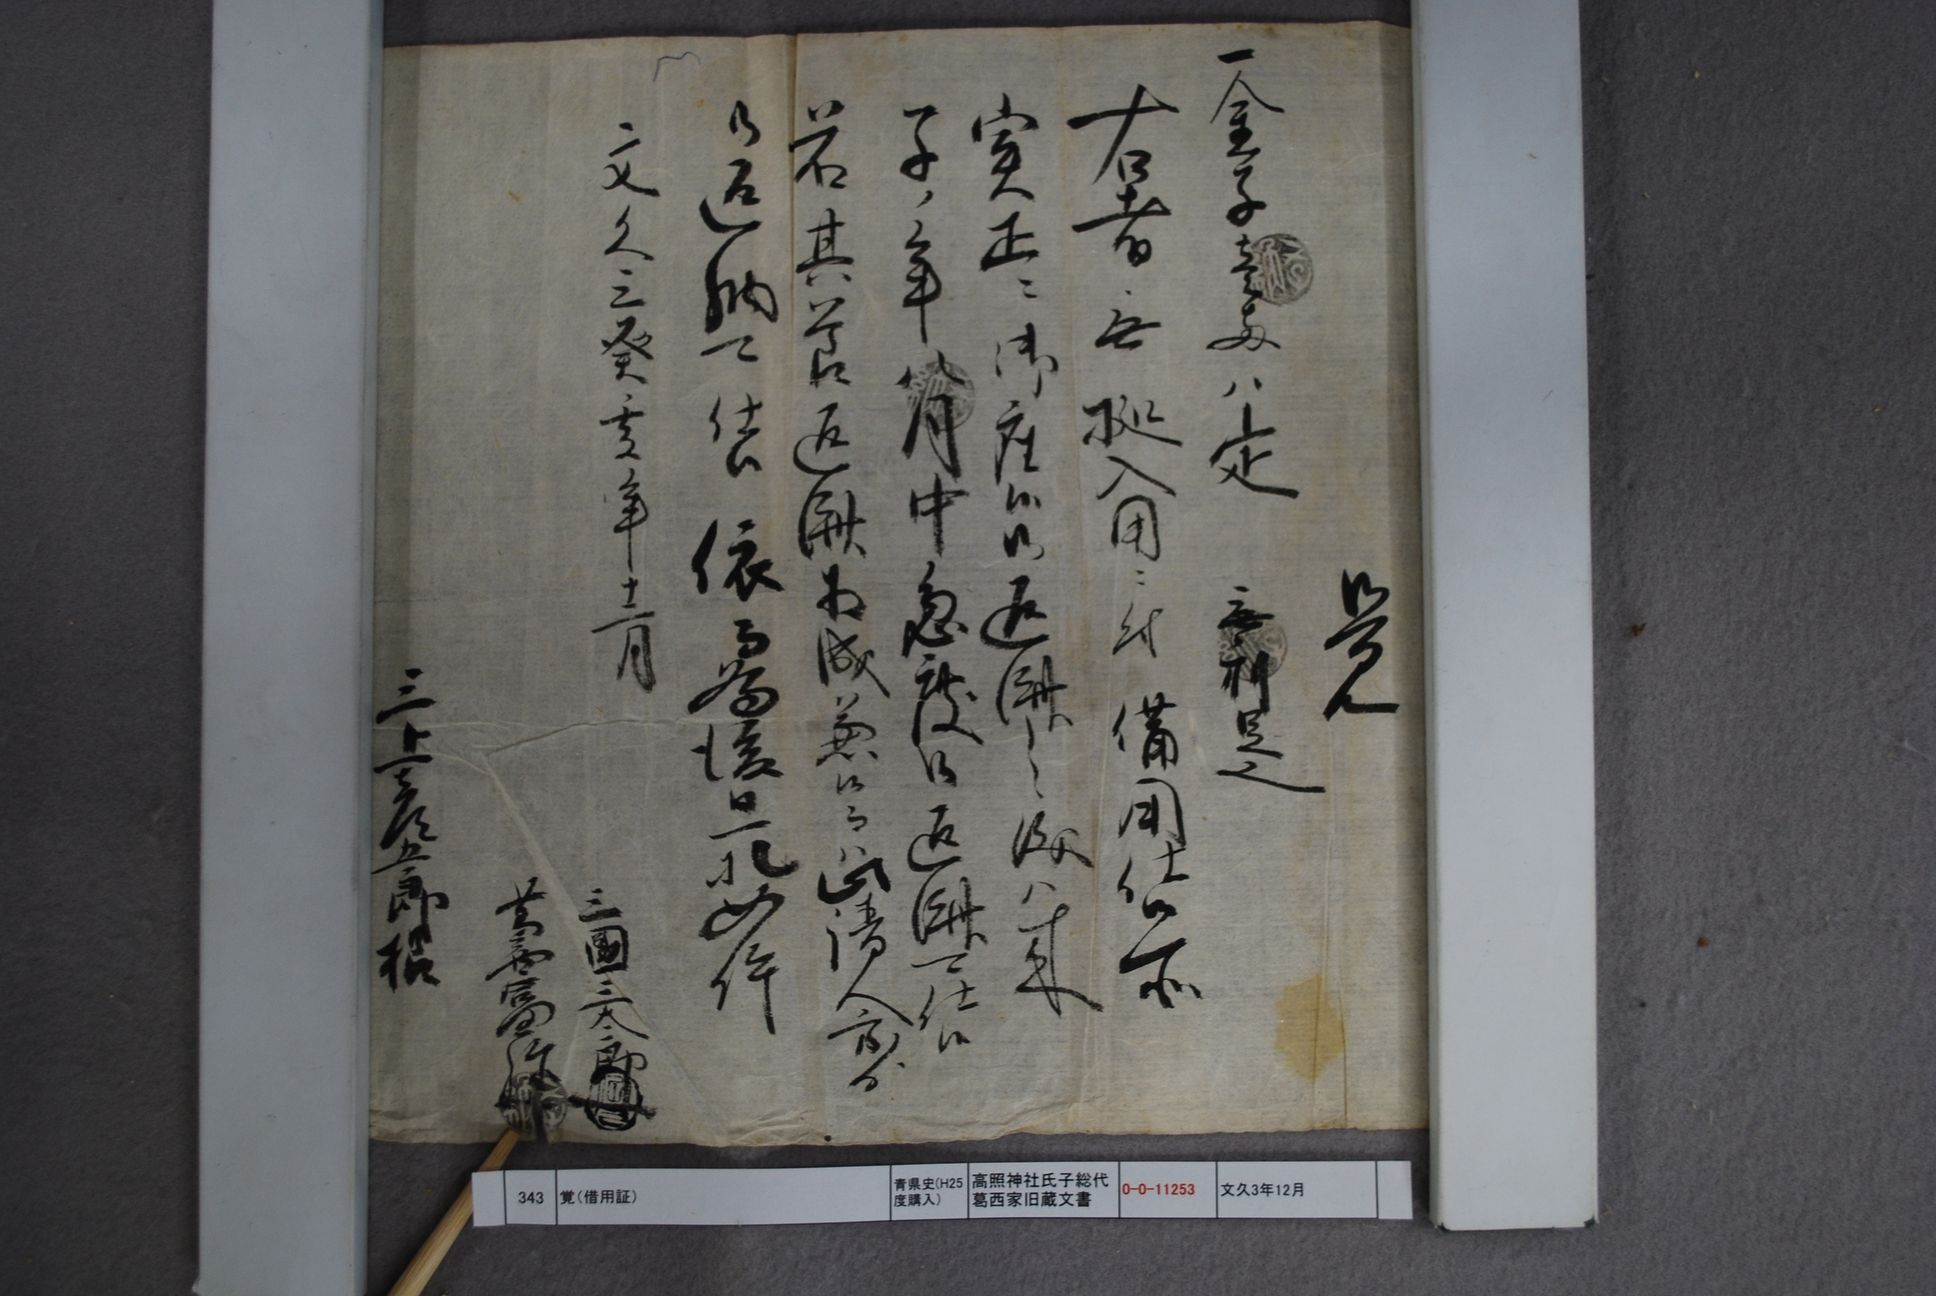 覚
一金子壱両ハ定
無利足也
右者無拠入用ニ付借用仕候所
実正ニ御座候御返済之儀ハ来
子ノ年八月中急度御返済可仕候
若其節返済相成兼候ハヽ請人方ゟ
御返納可仕候依而為後日一札如件
文久三癸亥年十二月
三國三太郎
三上嘉五郎様
343
覚(借用証)
青県史(H25
度購入)
高照神社氏子総代
葛西家旧蔵文書
0-0-11253
文久3年12月